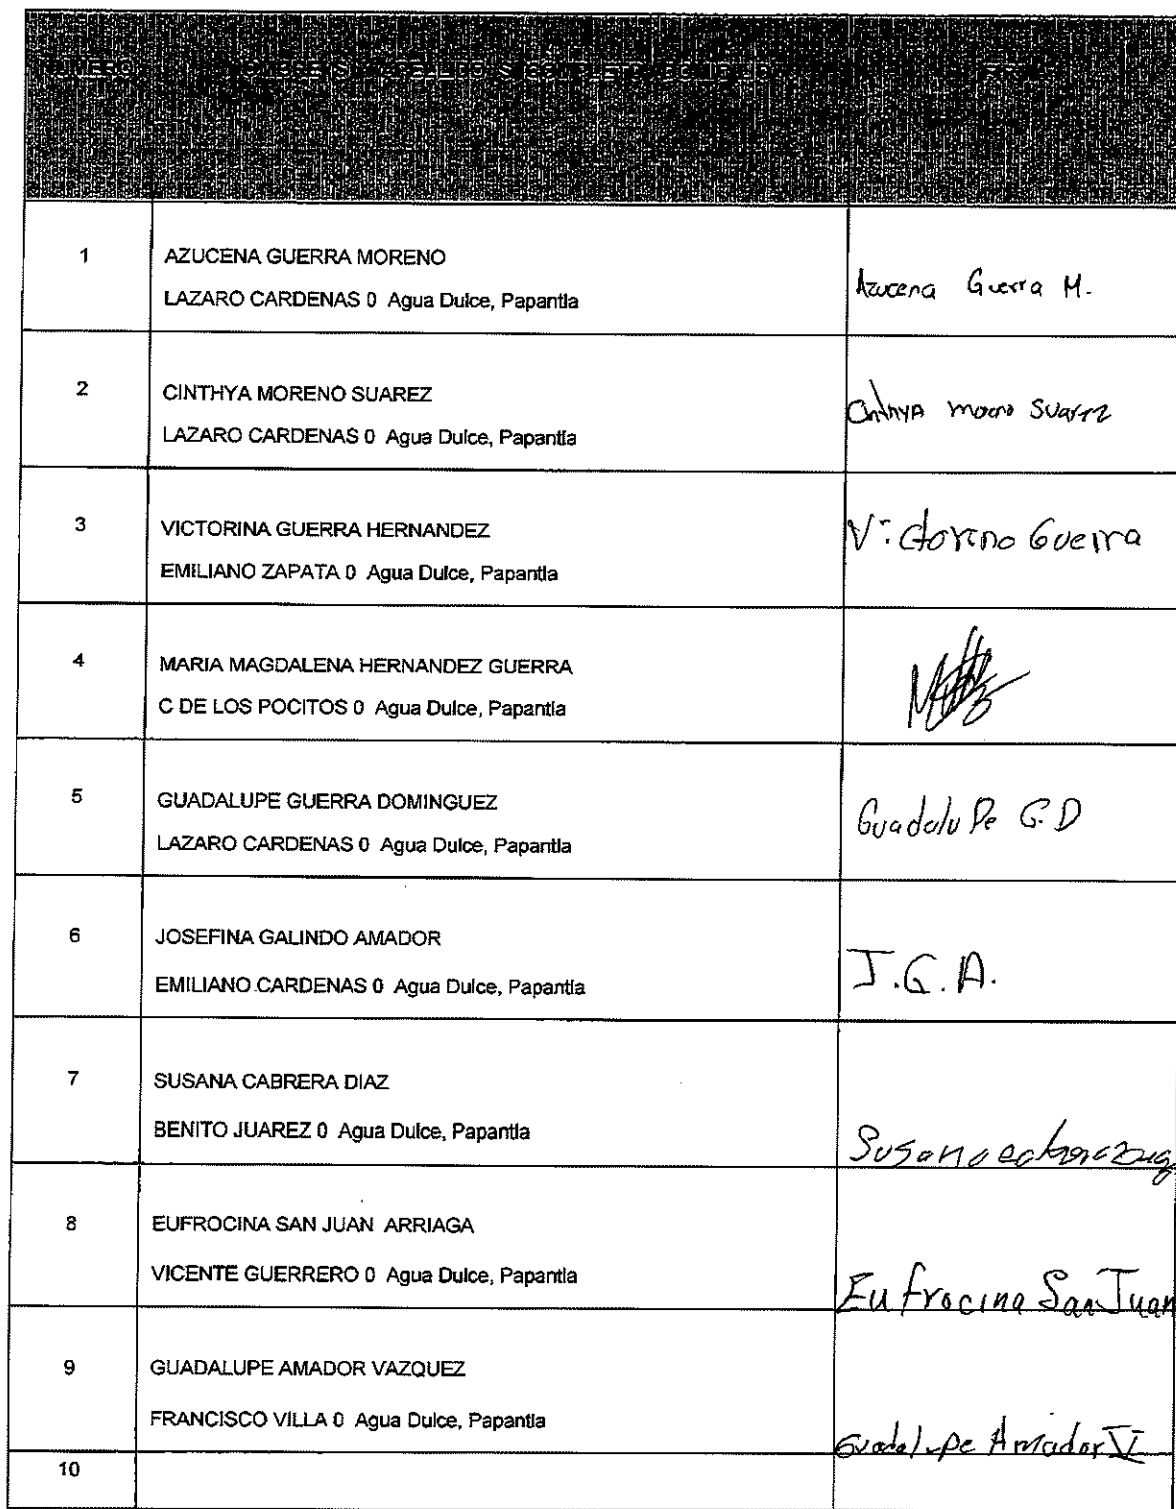 1
AZUCENA GUERRA MORENO
LAZARO CARDENAS 0 Agua Dulce, Papantla
Azucena Guerra M.
2
CINTHYA MORENO SUAREZ
LAZARO CARDENAS 0 Agua Dulce, Papantla
Cinthya Moreno Suarez
3
VICTORINA GUERRA HERNANDEZ
EMILIANO ZAPATA 0 Agua Dulce, Papantla
Victorino Guerra
4
MARIA MAGDALENA HERNANDEZ GUERRA
C DE LOS POCITOS 0 Agua Dulce, Papantla
5
GUADALUPE GUERRA DOMINGUEZ
LAZARO CARDENAS 0 Agua Dulce, Papantla
Guadalupe G.D
6
JOSEFINA GALINDO AMADOR
EMILIANO CARDENAS 0 Agua Dulce, Papantla
J.G.A.
7
SUSANA CABRERA DIAZ
BENITO JUAREZ 0 Agua Dulce, Papantla
Susana
8
EUFROCINA SAN JUAN ARRIAGA
VICENTE GUERRERO 0 Agua Dulce, Papantla
Eufrocina San Juan
9
GUADALUPE AMADOR VAZQUEZ
FRANCISCO VILLA 0 Agua Dulce, Papantla
Guadalupe Amador V
10